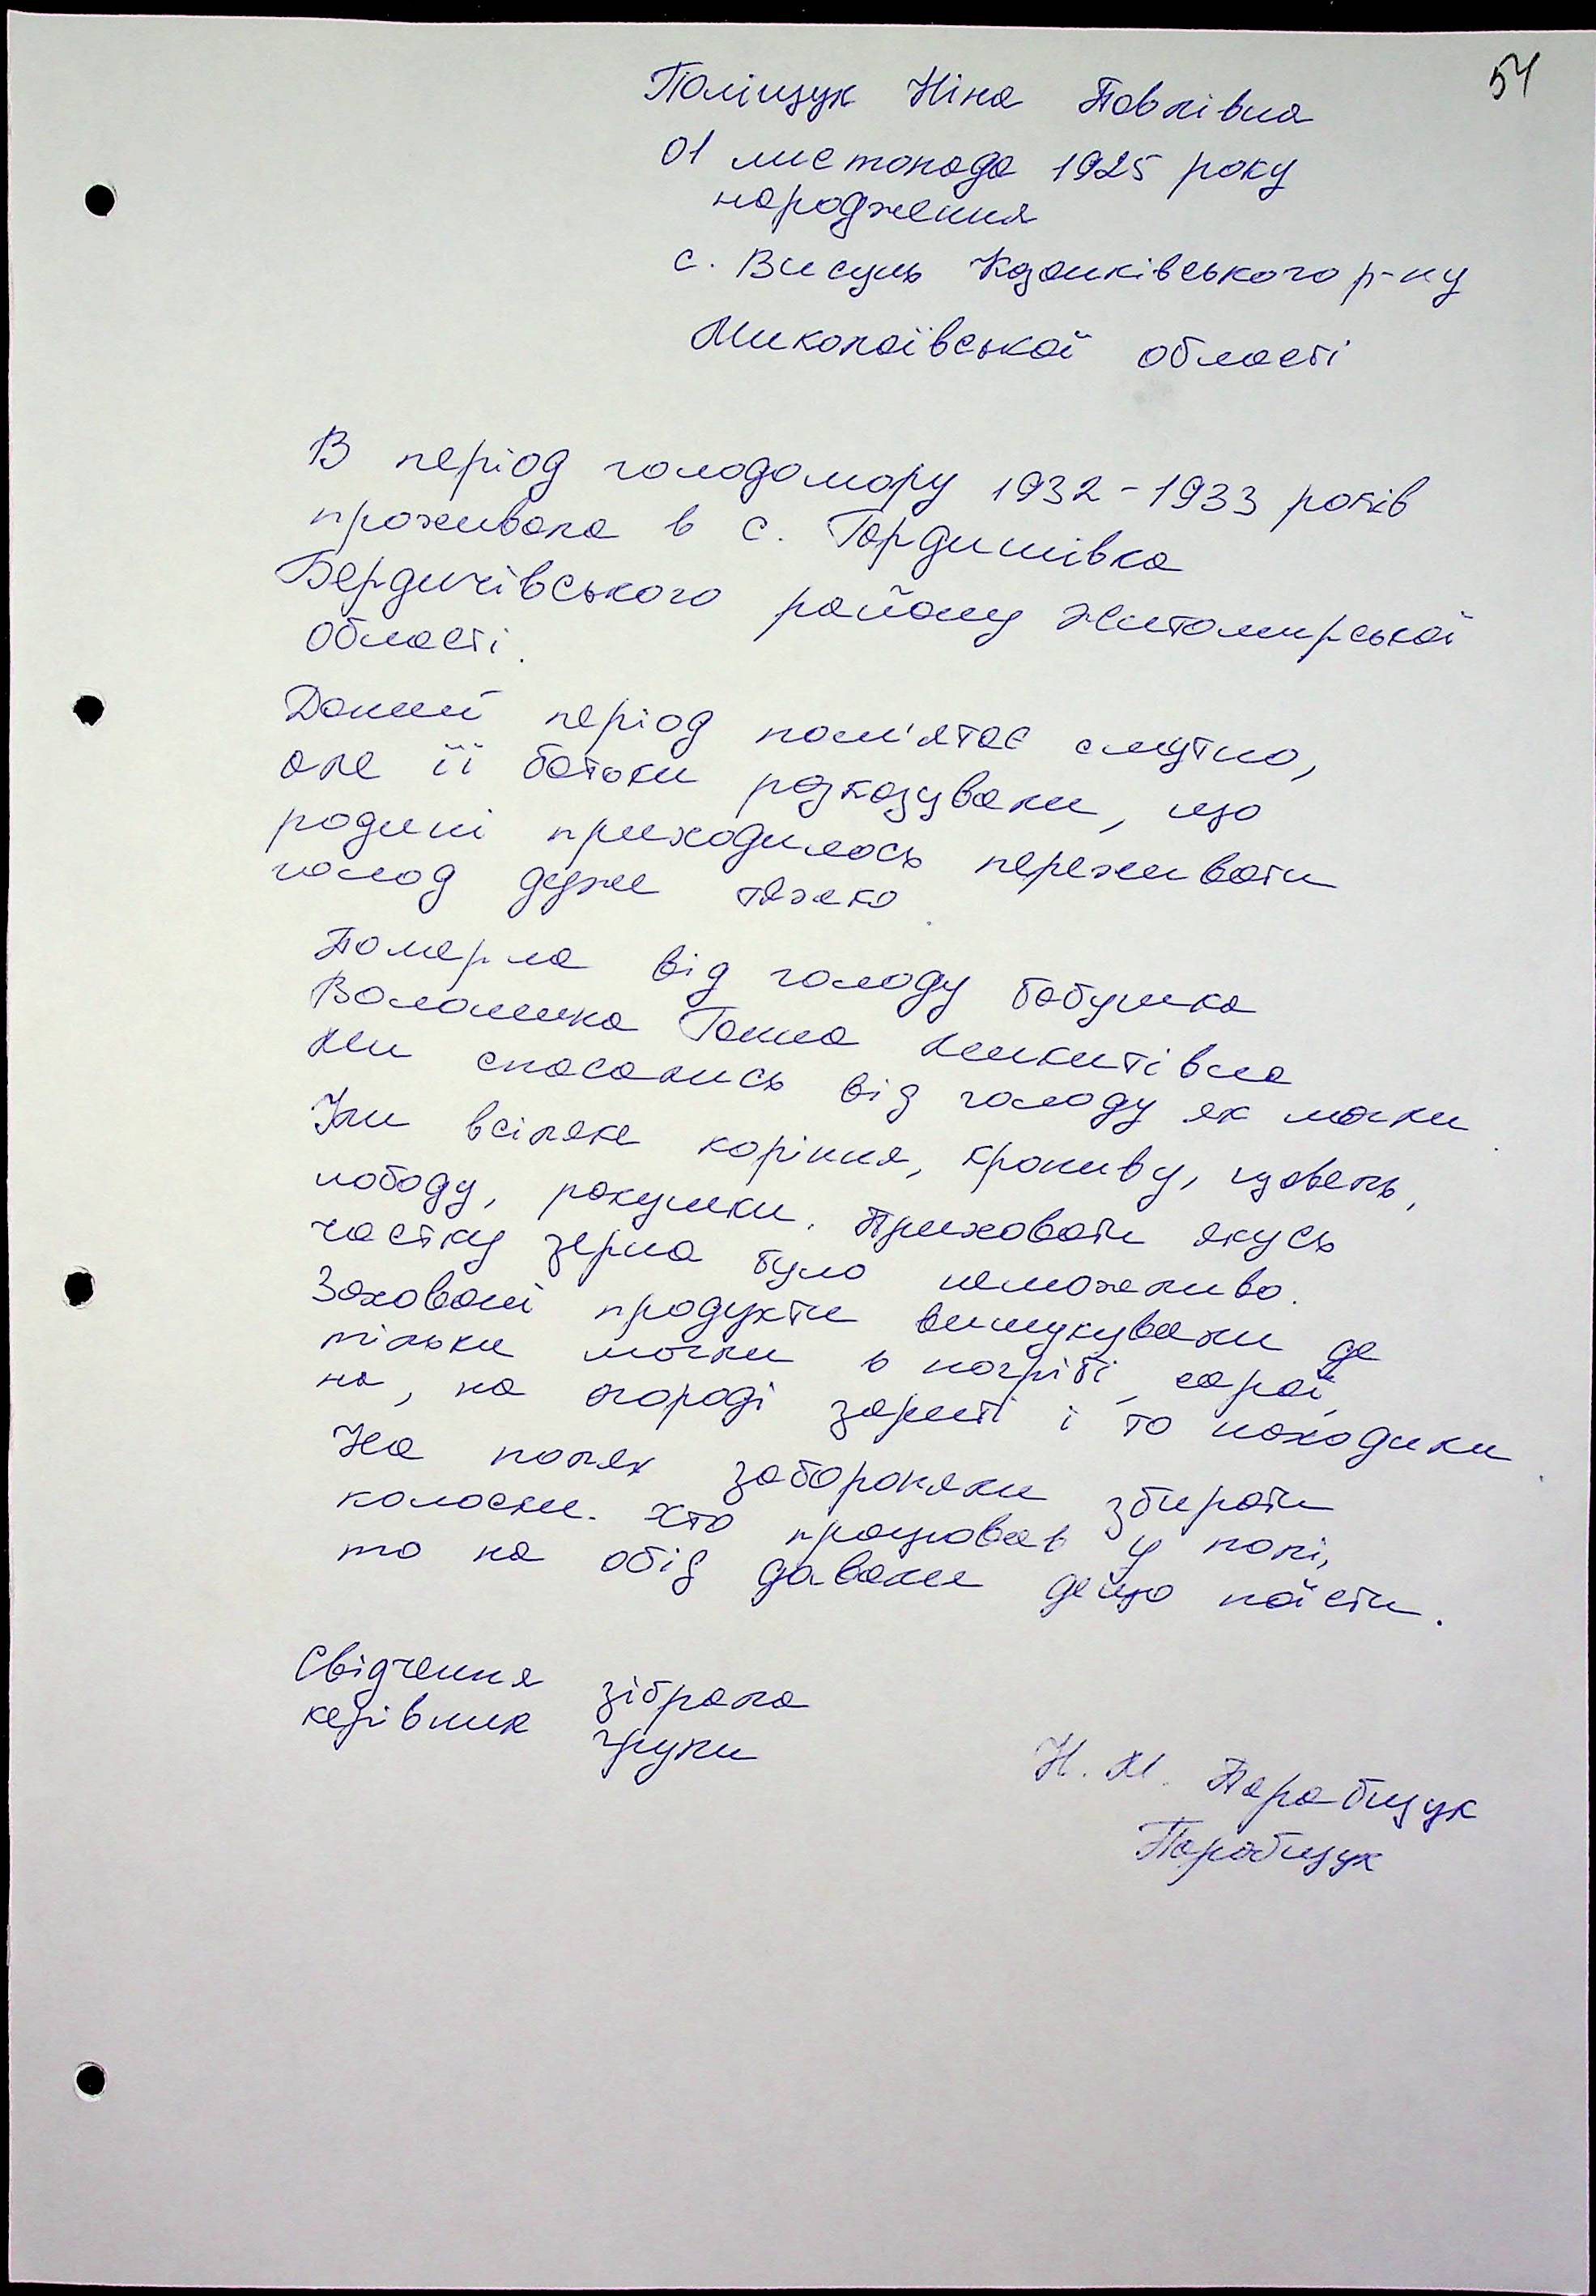 54
Поліщук Ніна Павлівна
01 листопада 1925 року
народження
с. Висунь Казанківського р-ну
Миколаївської області
В період голодомору 1932-1933 років
проживала в с. Гордишівка
Бердичівського району Житомирської
області.
Даний період пам'ятає смутно,
але її батьки розказували, що
родині приходилось переживати
голод дуже тяжко.
Померла від голоду бабушка
Волошина Ганна Микитівна
Ми спасались від голоду як могли.
Їли всіляке коріння, кропиву, щавель,
лободу, ракушки. Приховати якусь
частку зерна було неможливо.
Заховані продукти вишукували де
тільки могли в погрібі, сараї,
на, на огороді зариті і то находили.
На полях забороняли збирати
колоски. Хто працював у полі,
то на обід давали дещо поїсти.
Свідчення зібрала
керівник групи
Н. М. Парабщук
Парабщук